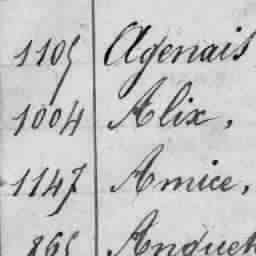 1105 Agenais
1004 Alix,
1147 Amice,
865 Anquet